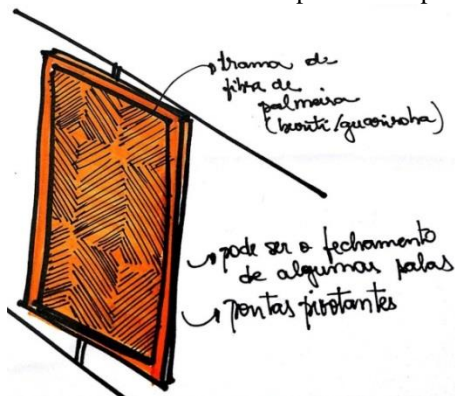 trama de
fibra de
palmeira
(buriti/guariroba)
pode ser o fechamento
de algumas salas
portas pivotantes